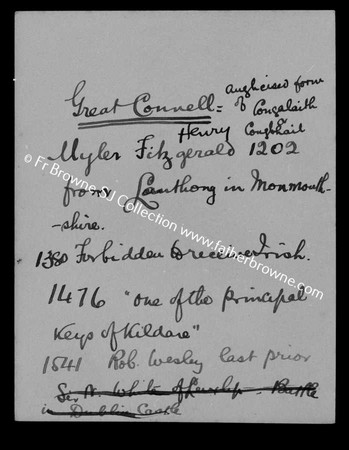 Great Connell = anglicised form
of Congalaith
Henry Congbhail
Myler Fitzgerald 1202
from Lanthony in Monmouth-
-shire.
1380 Forbidden to receive Irish.
1476 "one of the principal
Keys of Kildare"
1541 Rob. Wesley last prior
Sir N. White of
in Dublin Castle
© Fr Browne SJ Collection www.fatherbrowne.com